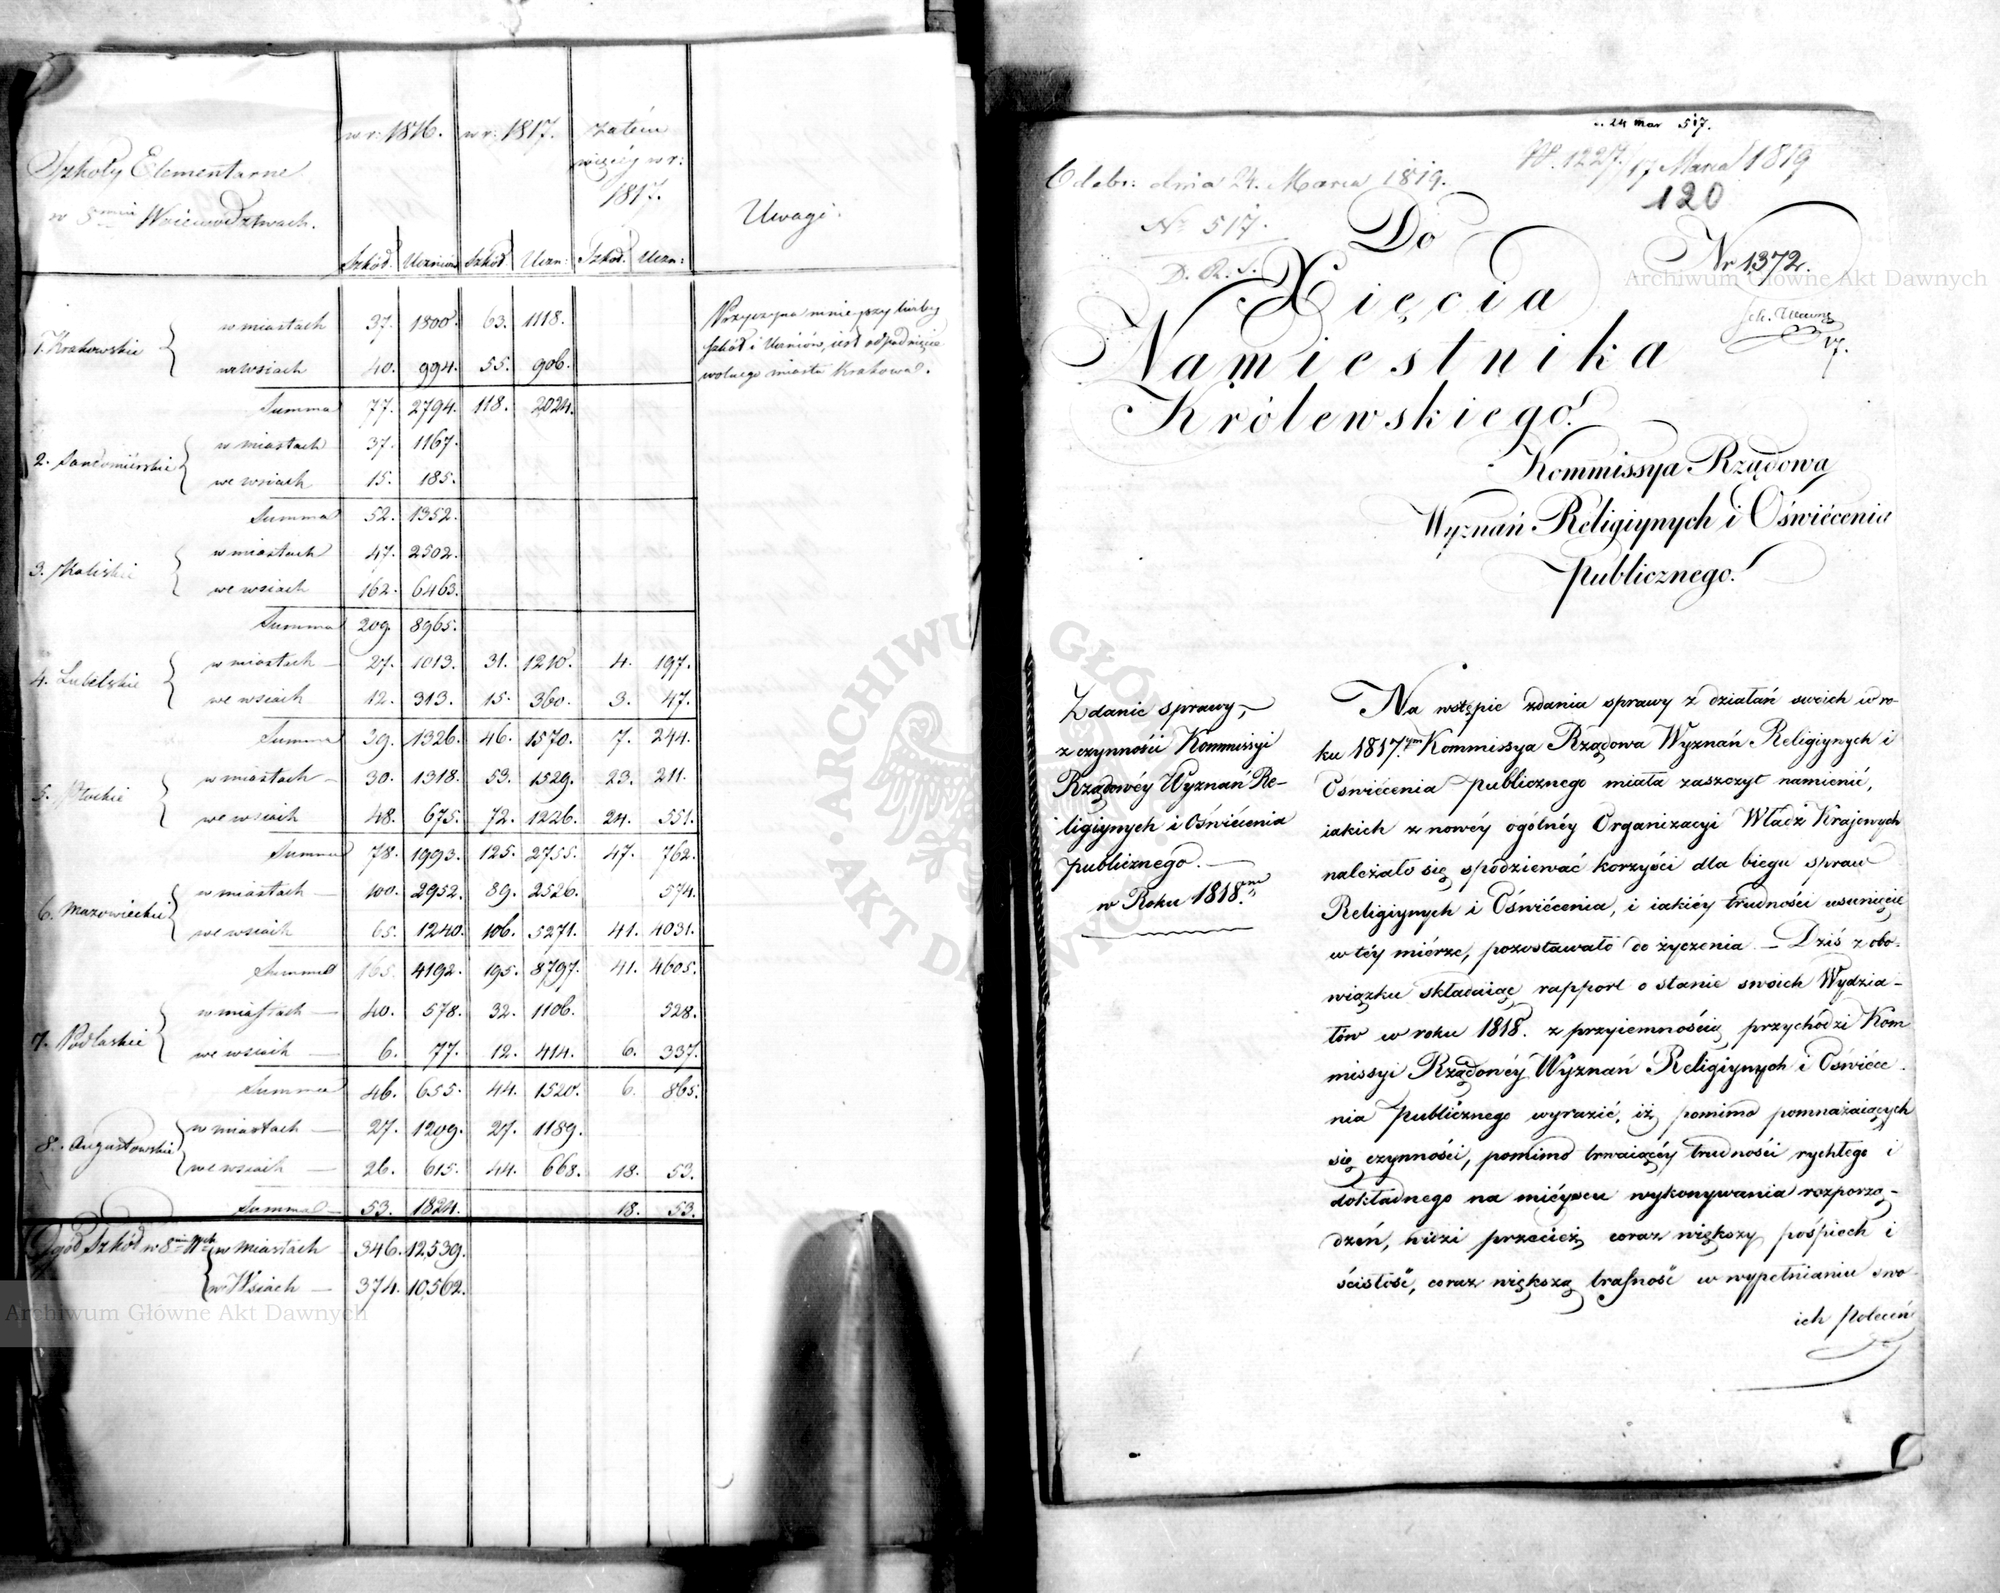 Szkoły Elementarne
w 5miu Woiewodztwach.
w r: 1816. w r: 1817. zatém
więcéy w r:
1817.
Uwagi.
Szkół. Uczniów Szkół Uczn: Szkół. Uczn:
1. Krakowskie
w miastach 37. 1800. 63. 1118.
we wsiach 40. 994. 55. 906.
Przyczyną mnieyszey liczby
szkół i Uczniów, iest odpadnięcie
wolnego miasta Krakowa.
Summa 77. 2794. 118. 2024.
2. Sandomierskie
w miastach 37. 1167.
we wsiach 15. 185.
Summa 52. 1352.
3. Kaliskie
w miastach 47. 2502.
we wsiach 162. 6463.
Summa 209. 8965.
4. Lubelskie
w miastach — 27. 1013. 31. 1210. 4. 197.
we wsiach 12. 313. 15. 360. 3. 47.
Summa 39. 1326. 46. 1570. 7. 244.
5. Płockie
w miastach — 30. 1318. 53. 1529. 23. 211.
we wsiach 48. 675. 72. 1226. 24. 551.
Summa 78. 1993. 125. 2755. 47. 762.
6. Mazowieckie
w miastach — 100. 2952. 89. 2526. 574.
we wsiach 65. 1240. 106. 5271. 41. 4031.
Summa 165. 4192. 195. 8797. 41. 4605.
7. Podlaskie
w miastach — 40. 578. 32. 1106. 528.
we wsiach — 6. 77. 12. 414. 6. 337.
Summa 46. 655. 44. 1520. 6. 865.
8. Augustowskie
w miastach — 27. 1209. 27. 1189.
we wsiach — 26. 615. 44. 668. 18. 53.
Summa — 53. 1824. 18. 53.
Ogół Szkół w 8miu Wdch w Miastach 346. 12,539.
w Wsiach — 374. 10,562.
Archiwum Główne Akt Dawnych
24 mar 517.
Odebr: dnia 24. Marca 1819.
N. 1227/17 Marca 1819
120
Nr 517.
D. R. S.
Nr 1372.
Archiwum Główne Akt Dawnych
Do
Xięcia
Namiestnika
Królewskiego.
17.
Kommissya Rządowa
Wyznań Religiynych i Oświécenia
publicznego.
Zdanie sprawy,
z czynności Kommissyi
Rządowéy Wyznań Re-
ligiynych i Oświécenia
publicznego. —
w Roku 1818ym
Na wstępie zdania sprawy z działań swoich w ro-
ku 1817ym Kommissya Rządowa Wyznań Religiynych i
Oświécenia publicznego miała zaszczyt namienić,
iakich z nowéy ogólnéy Organizacyi Władz Krajowych
należało się spodziewać korzyści dla biegu spraw
Religiynych i Oświécenia, i iakiéy trudności usunięcie
w téy miérze, pozostawało do życzenia — Dziś z obo-
wiązku składaiąc rapport o stanie swoich Wydzia-
łów w roku 1818. z przyiemnością przychodzi Kom
missyi Rządowéy Wyznań Religiynych i Oświéce
nia publicznego wyrazić, iż pomimo pomnażaiących
się czynności, pomimo trwaiącéy trudności rychłego i
dokładnego na mieyscu wykonywania rozporzą-
dzeń, widzi przecież coraz większy pośpiech i
ścisłość, coraz większą trafność w wypełnianiu swo-
ich poleceń
ARCHIWUM GŁÓWNE AKT DAWNYCH